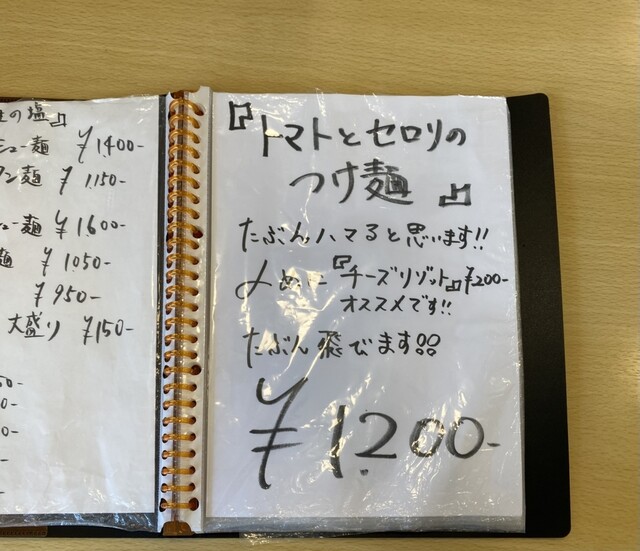 の塩』
シュー麺 ¥1,400-
タン麺 ¥1,150-
ュー麺 ¥1600-
麺 ¥1050-
¥950-
大盛り ¥150-
50-
0-
0-
『トマトとセロリの
つけ麺』
たぶんハマると思います!!
〆めに『チーズリゾット』¥200-
オススメです!!
たぶん飛びます!!
¥1,200-